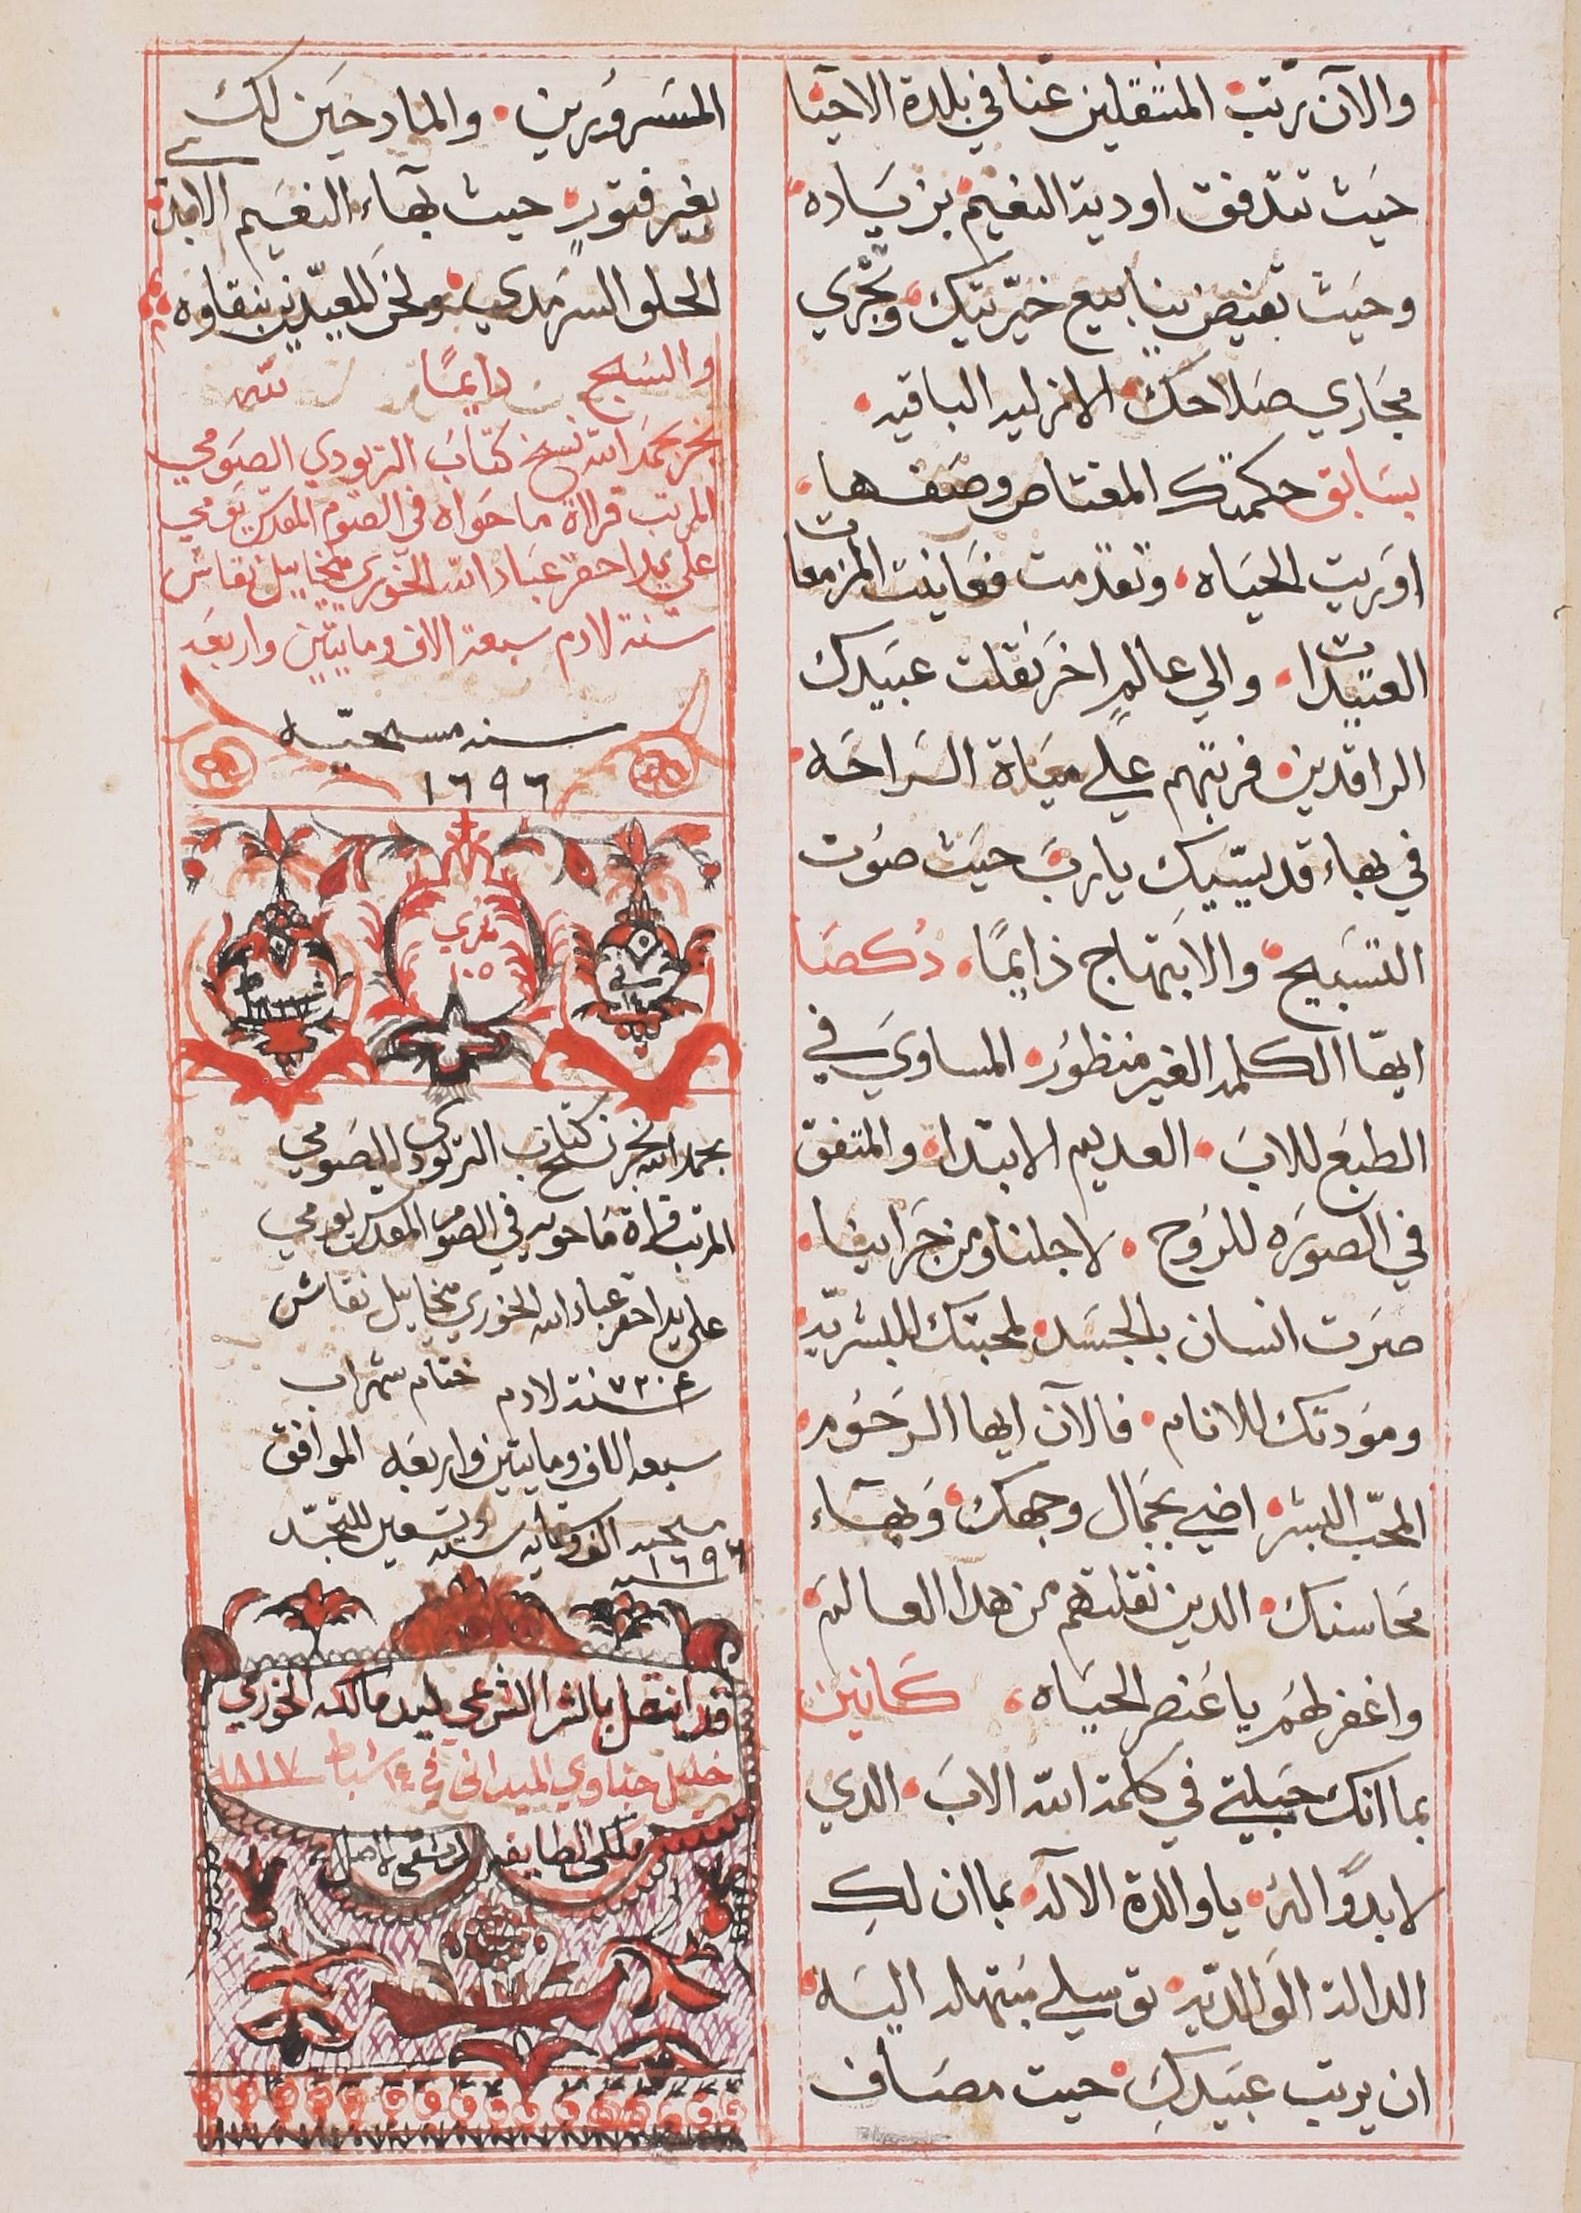 والآن رتب المنتقلين عنا في بلدة الاحيا
حيث تتدفق اودية النعيم بزياده
وحيث تفيض ينابيع خيريتك وتجري
مجاري صلاحك الازليه الباقيه
بسابق حكمتك المعتاص وصفها
اوريت الحياه وتقدمت فعاينت المزمعات
العتيدات والي عالمٍ اخر نقلت عبيدك
الراقدين فرتبهم علي مياة الراحه
في بهاء قديسيك يا رب حيث صوت
التسبيح والابتهاج دايمًا دكصا
ايها الكلمه الغير منظور المساوي في
الطبع للاب العديم الابتدا والمتفق
في الصوره للروح لاجلنا ومن جراينا
صرت انسان بالجسد لمحبتك للبشريه
ومودتك للانام فالآن ايها الرحوم
المحب البشر اضي بجمال وجهك وبهاء
محاسنك الدين نقلتهم من هدا العالم
واغفر لهم يا عنصر الحياه كانين
بما انك حبلتي في كلمة الله الاب الدي
لا بدوًا له يا والدة الاله بما ان لكِ
الدالة الوالديه توسلي مبتهله اليه
ان يرتب عبيدكِ حيت مصاف
المسرورين والمادحين لك
بغير فتورٍ حيث بهاء النعيم الابدي
الحلو السرمدي ولحن المعيدين بنقاوه
والسبح دايمًا لله
نجز بحمد الله نسخ كتاب التريودي الصومي
المرتب قراة ما حواه في الصوم المقدس يومي
علي يد احقر عباد الله الخوري ميخاييل نقاش
سنة لادم سبعة الاف ومايتين واربعه
سنه مسيحيه
١٦٩٦
بحمد الله نجز نسخ كتاب التريودي الصومي
المرتب قراة ما حويه في الصوم المقدس يومي
علي يد احقر عباد الله الخوري ميخاييل نقاش
٧٢٠٤ سنة لادم ختام شهر اب
سبعه الاف ومايتين واربعه الموافق
مسيحيه الف وستمايه سته وتسعين للتجسد
سنه ١٦٩٦
قد انتقل بالشرا الشرعي ليد مالكه الخوري
خليل جناوي الميداني في ١٤ شباط ١٨١٧
ملكي الطايفه الدمشقي الاصل